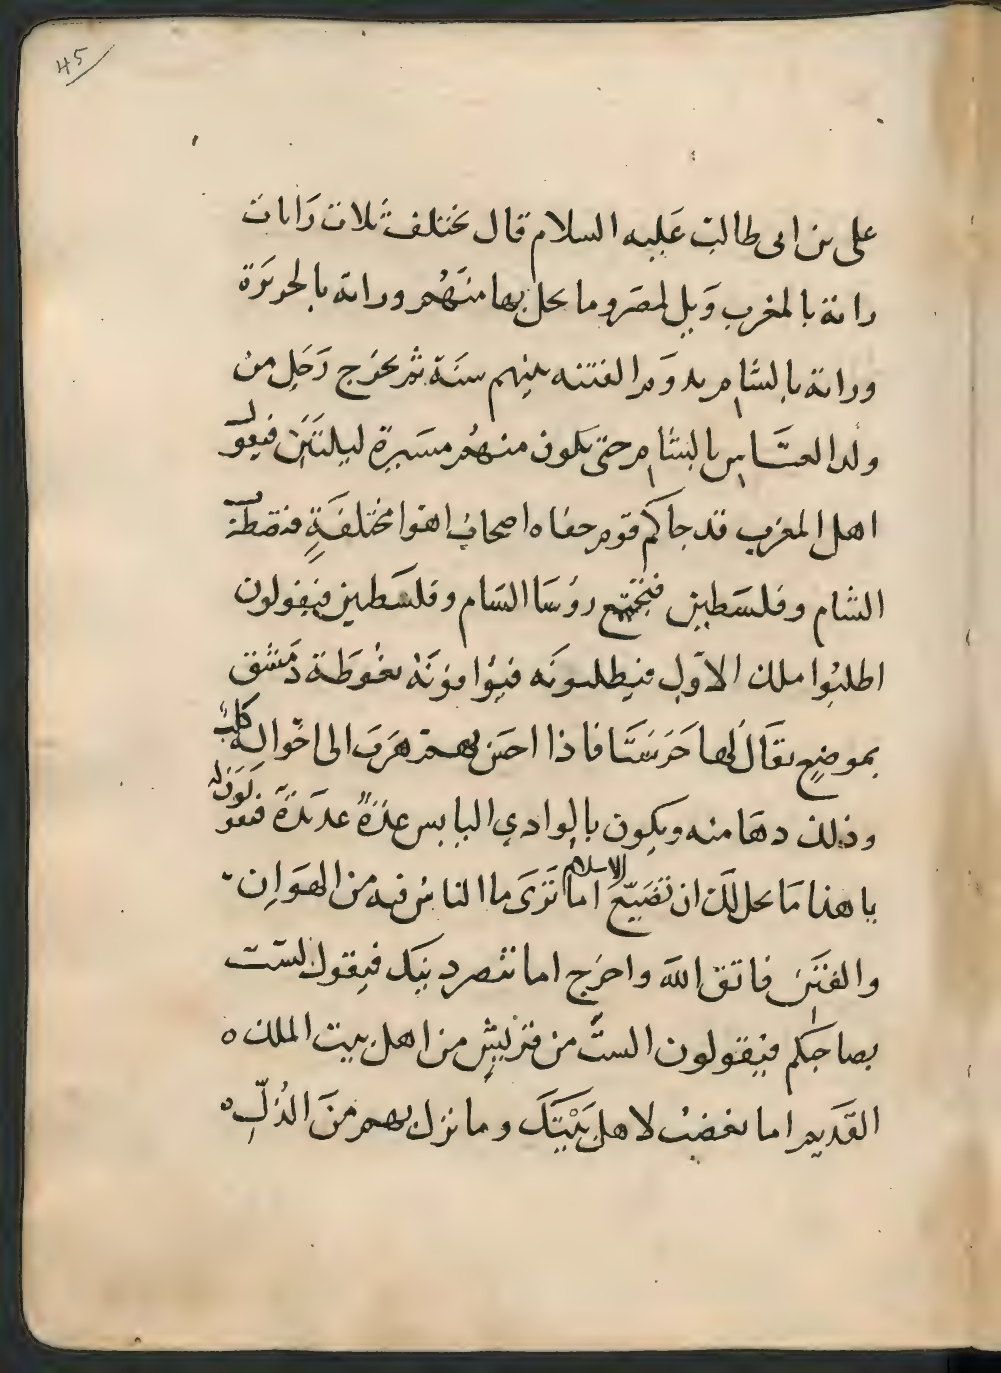 45
على بن ابى طالب عَليه السلام قال تختلف ثلاث رَايات
راية بالمغرب وَيل لمصَر وما يحل بها منهُم وراية بالجزيَرة
وراية بالشام يدوَم الفتنه بينهم سنَة ثم يخرَج رَجَل من
ولد العبَّاس بالشام حتى يكون منهُم مسَيرة ليلتَين فيقول
اهل المغرب قد جاكم قوم حفاه اصحاب اهوا مختلفَةٍ
الشام وفلسَطين فيجتمع روُسَا الشام وفلسَطين فيقولون
اطلبُوا ملك الاوّل فيطلبونَه فيوُافونَهُ بغوطَة دَمشق
بموضعٍ يقَال لها حَرَسَتَا فاذا احسَ بهم هرَبَ الى اخوالِه كلب
وذلك دهَا منه ويكون بالوادي اليابس عدّةً عديَدةَ فيقولَون له
يا هذا مَا يحل لكَ ان تضَيّعَ الاسلام اما تَرَى ما الناسُ فيه من الهوَاِن
والفتَن فاتق اللهَ واخرَج اما تنصر دينَك فيقول لسَت
بصاحبكم فيقولون الستُ من قريشٍ من اهل بيت الملك ه
القدَيم اما تغضبُ لاهل بَيْتَكَ وما نزل بهم منَ الذُلّ ه